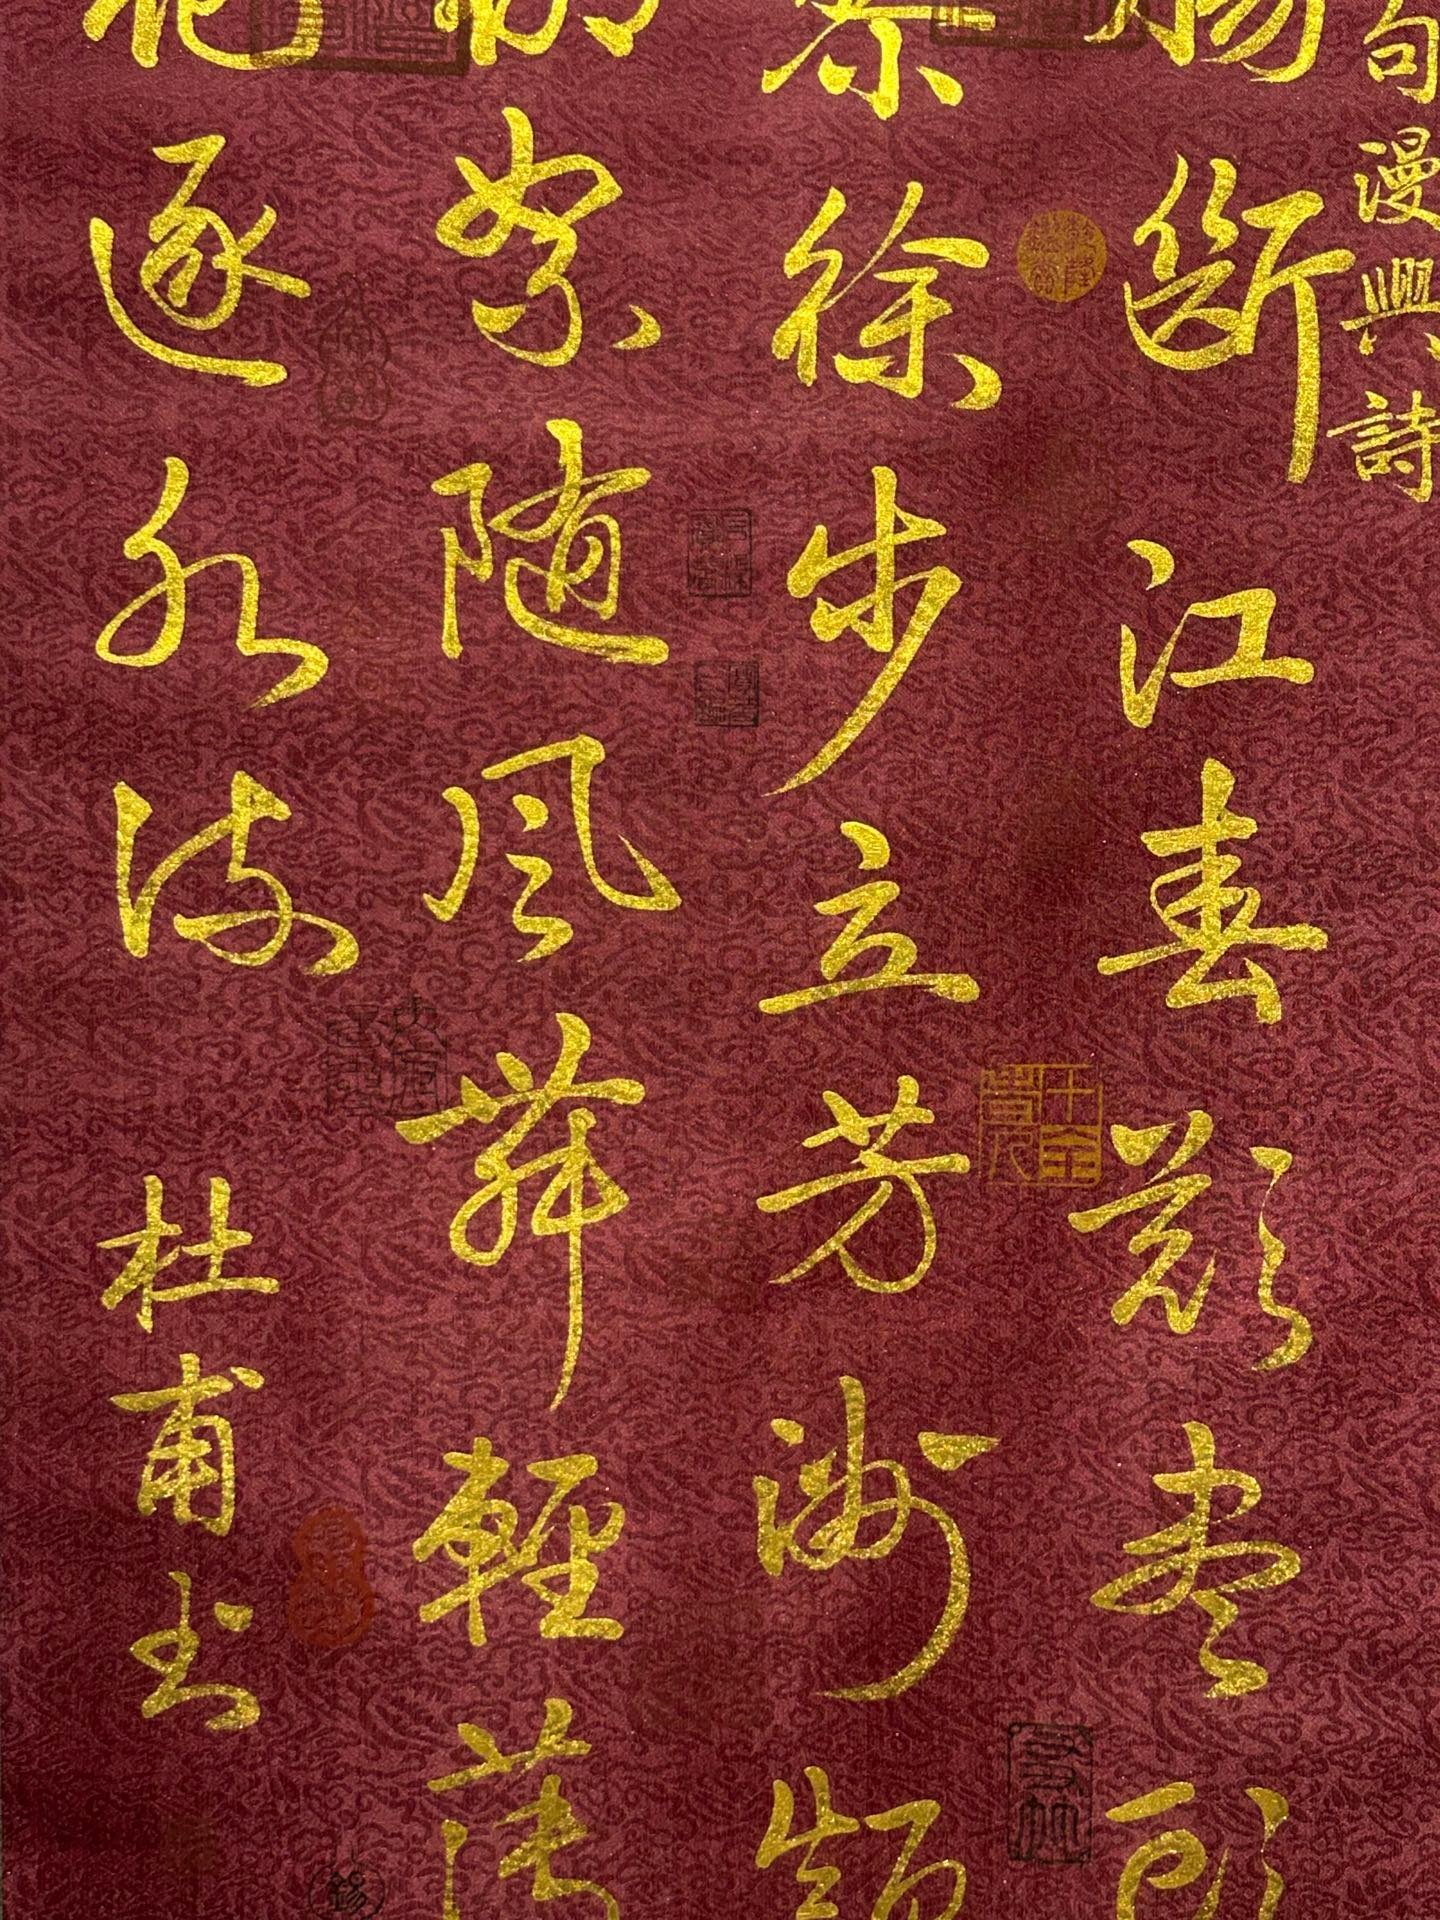 句漫興詩
腸斷江春欲盡頭
藜徐步立芳洲顛
柳絮随风舞輕薄
花逐水流 杜甫书